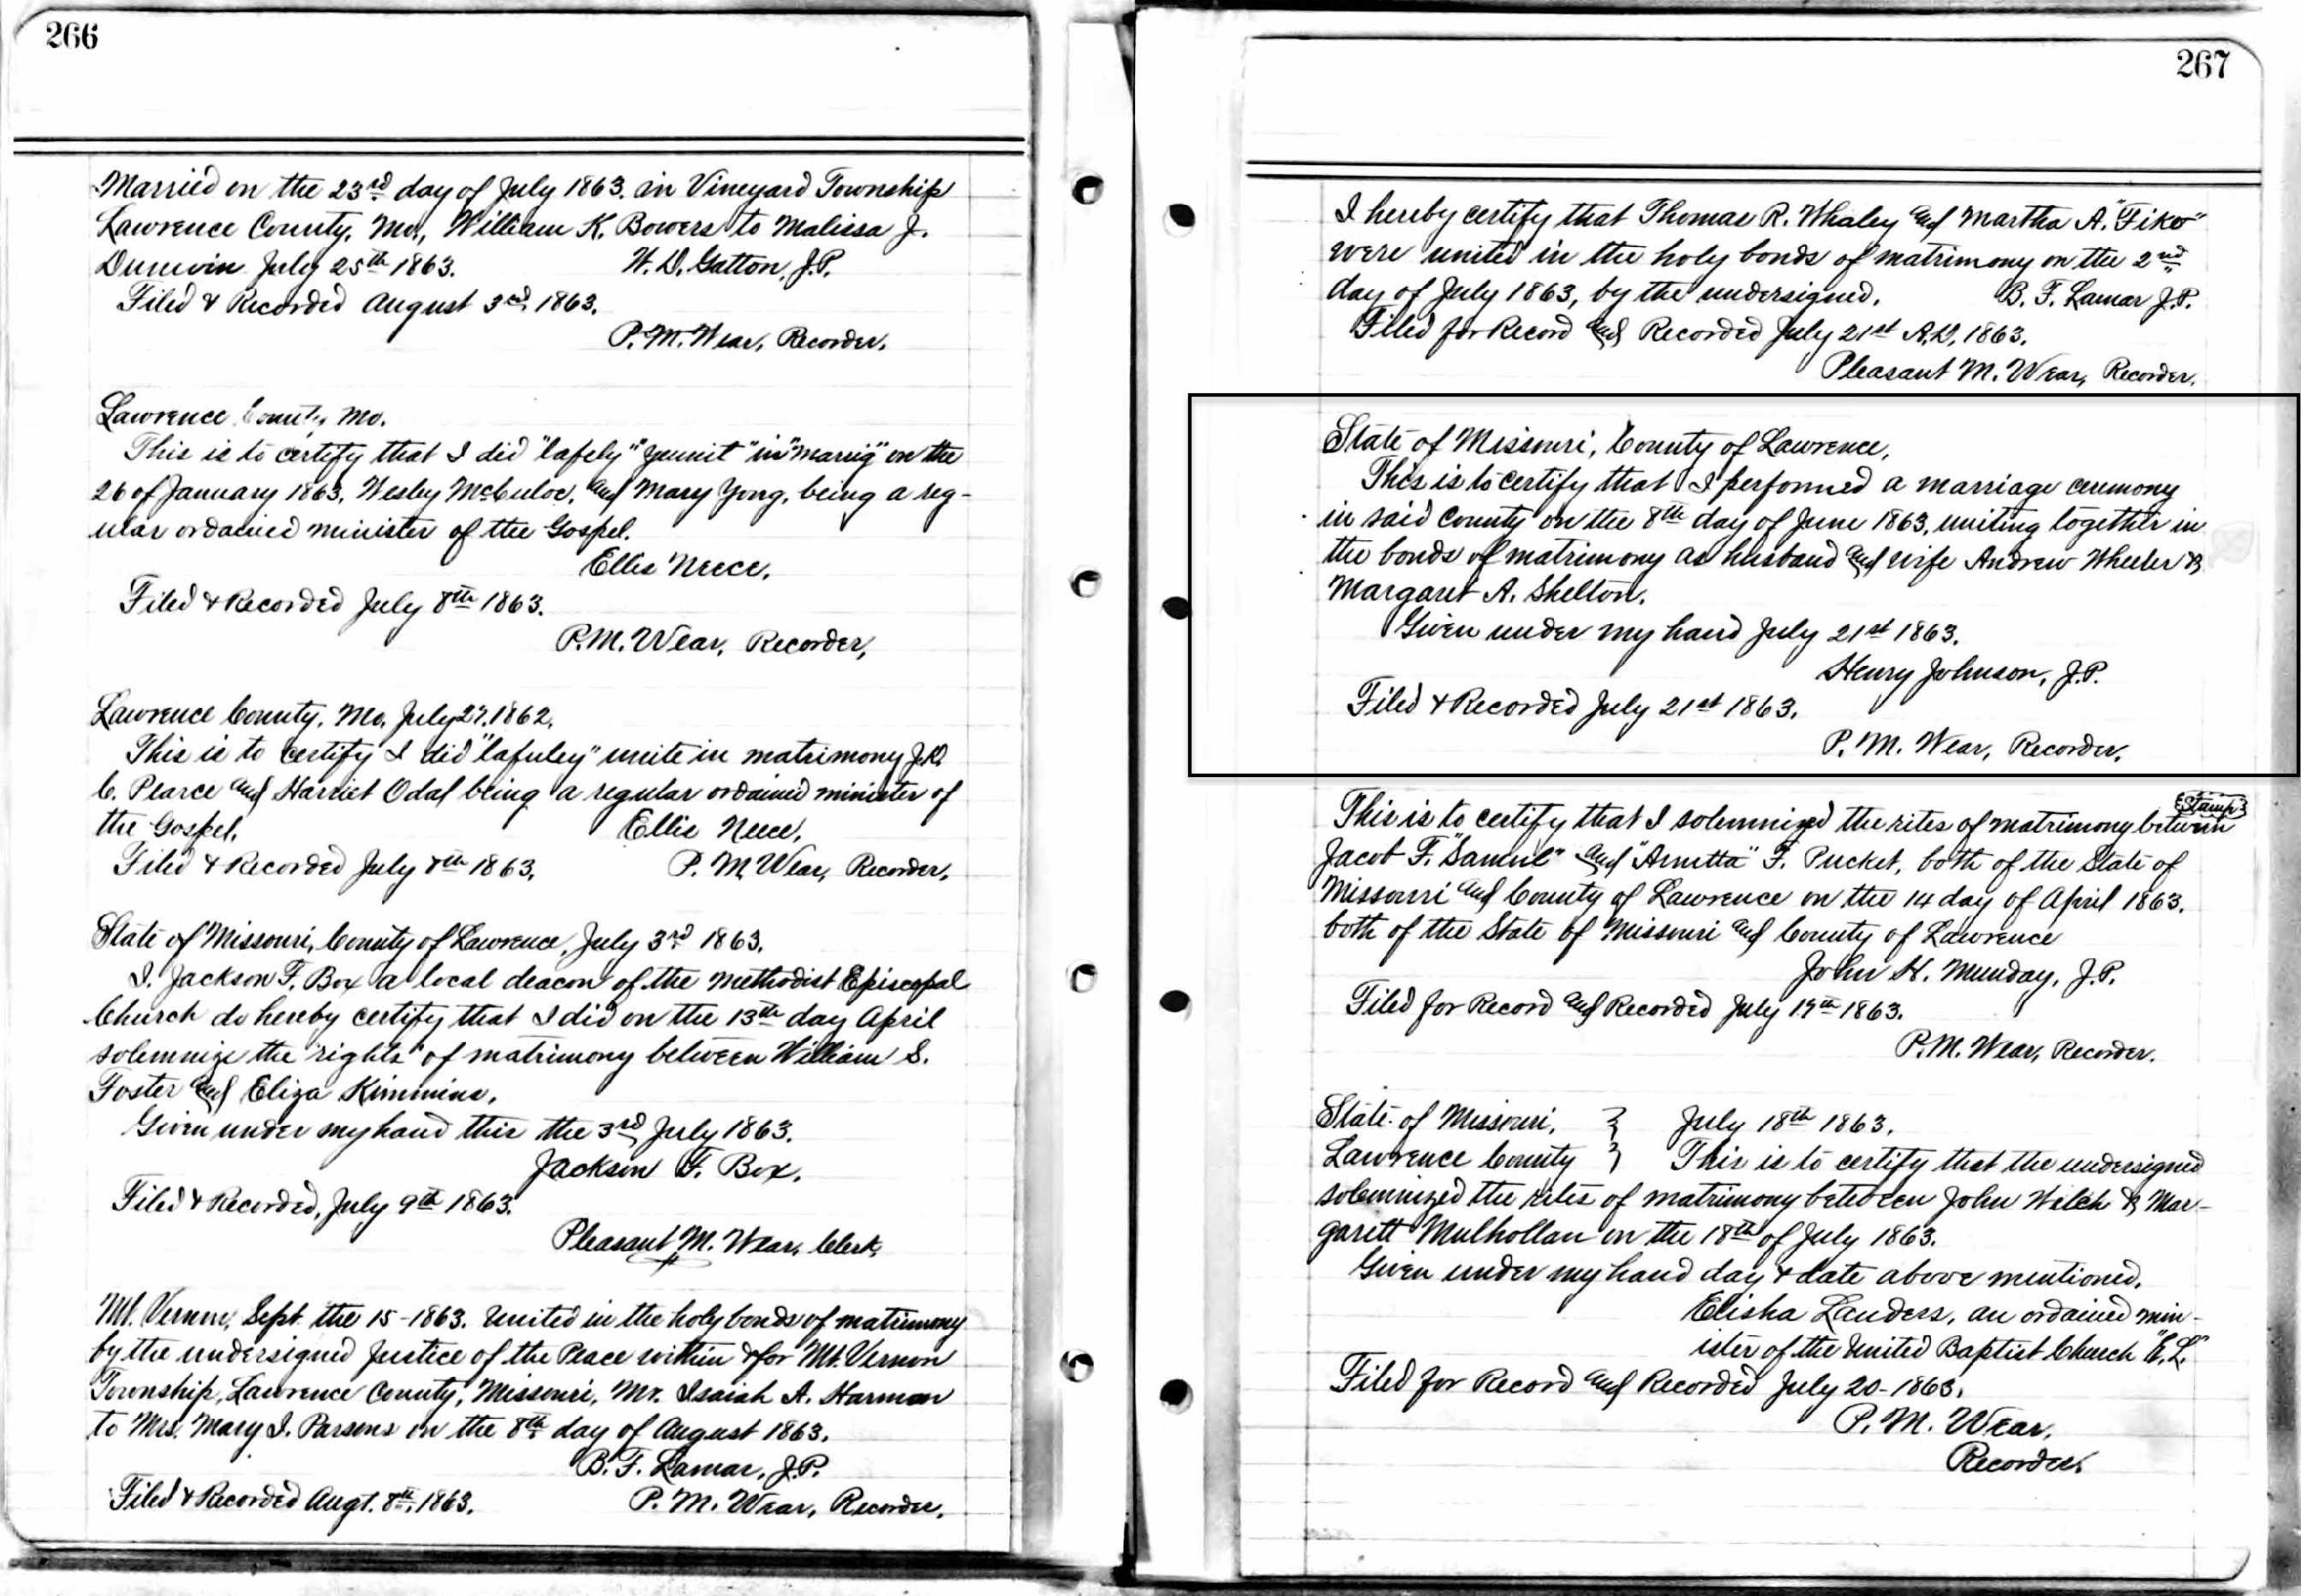 266
Married on the 23rd day of July 1863. in Vineyard Township
Lawrence County, Mo., William K. Bowers to Malissa J.
July 25th 1863. W. D. Gatton, J.P.
Filed & Recorded August 3rd, 1863.
P. M. Wear, Recorder.
Lawrence County Mo.
This is to certify that I did "lafely" "yunit" "in" "marrig" on the
26 of January 1863, Wesley McCuloc, and Mary Yong, being a reg-
ular ordained minister of the Gospel.
Ellis Neece.
Filed & Recorded July 8th 1863.
P. M. Wear, Recorder,
Lawrence County, Mo, July 27, 1862.
This is to certify I did "lafuley" unite in matrimony J.D.
C. Pearce and Harriet Odal being a regular ordained minister of
the Gospel, Ellis Neece,
Filed & Recorded July 8th 1863, P. M. Wear, Recorder,
State of Missouri, County of Lawrence, July 3rd 1863.
I, Jackson F. Box a local deacon of the Methodist Episcopal
Church do hereby certify that I did on the 13th day April
solemnize the "rights" of matrimony between William S.
Foster and Eliza Kimmins,
Given under my hand this the 3rd July 1863.
Jackson F. Box.
Filed & Recorded, July 9th 1863.
Pleasant M. Wear, Clerk,
Mt. Vernon, Sept. the 15-1863. United in the holy bonds of matrimony
by the undersigned Justice of the Peace within & for Mt. Vernon
Township, Lawrence County, Missouri, Mr. Isaiah A. Harman
to Mrs. Mary I. Parsons on the 8th day of August 1863.
B. F. Lamar, J.P.
Filed & Recorded Augt. 8th, 1863. P. M. Wear, Recorder.
267
I hereby certify that Thomas R. Whaley and Martha A. "Fike"
were united in the holy bonds of matrimony on the 2nd
day of July 1863, by the undersigned. B. F. Lamar J.P.
Filed for Record and Recorded July 21st A.D. 1863.
Pleasant M. Wear, Recorder.
State of Missouri, County of Lawrence,
This is to certify that I performed a marriage ceremony
in said County on the 8th day of June 1863, uniting together in
the bonds of matrimony as husband and wife Andrew Wheeler &
Margaret A. Shelton.
Given under my hand July 21st 1863.
Henry Johnson, J.P.
Filed & Recorded July 21st 1863.
P. M. Wear, Recorder.
Stamp
This is to certify that I solemnized the rites of matrimony between
Jacob F. "Samul" and "Arnetta" F. Pucket, both of the State of
Missouri and County of Lawrence on the 14 day of April 1863.
both of the State of Missouri and County of Lawrence
John H. Munday, J.P.
Filed for Record and Recorded July 19th 1863.
P. M. Wear, Recorder.
State of Missouri, } July 18th 1863.
Lawrence County } This is to certify that the undersigned
solemnized the rites of matrimony between John Welch & Mar-
garett Mulhollan on the 18th of July 1863.
Given under my hand day & date above mentioned.
Elisha Landers, an ordained min-
ister of the United Baptist Church "E.L."
Filed for Record and Recorded July 20-1863.
P. M. Wear,
Recorder.